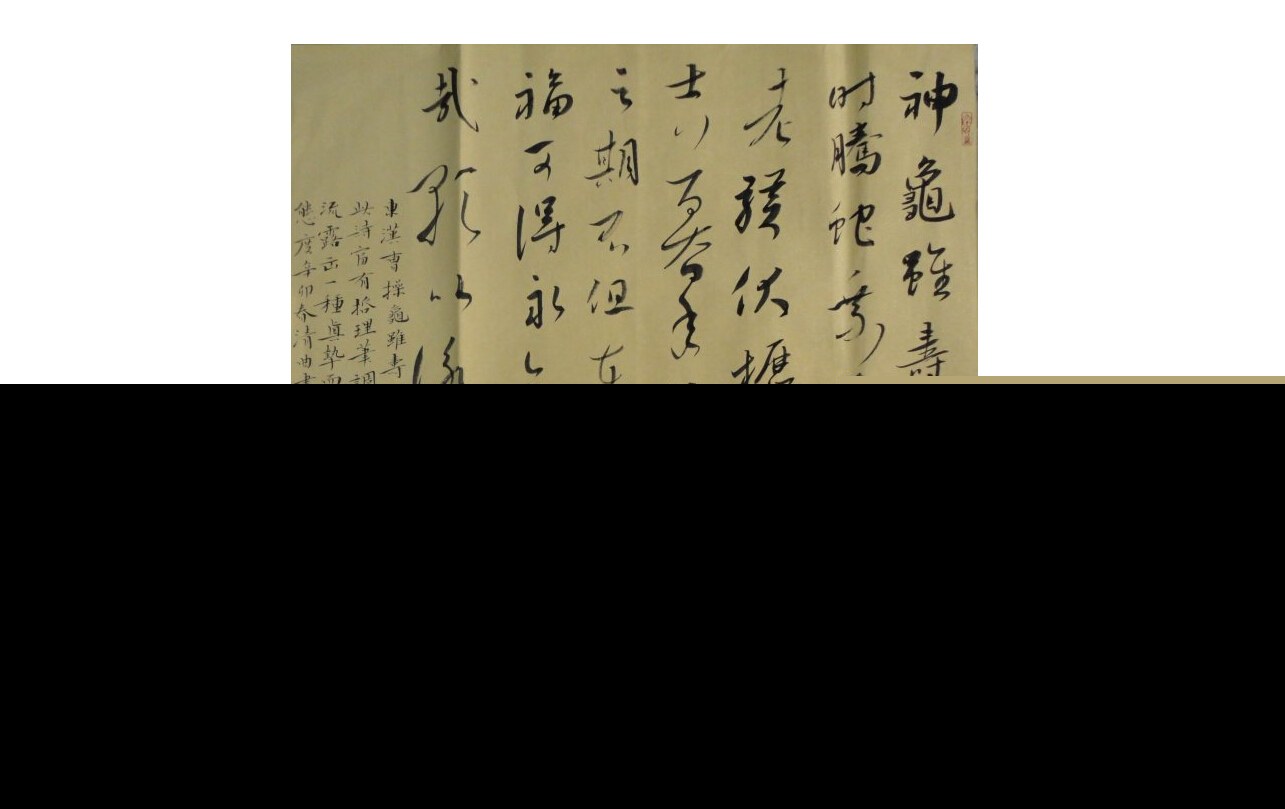 神龜雖壽
時騰蛇乘
老驥伏櫪
士
之期不但在
福可得永
哉歌以詠
東漢曹操龜雖壽
此詩富有哲理筆調
流露出一種真摯而
態度辛卯春清曲書